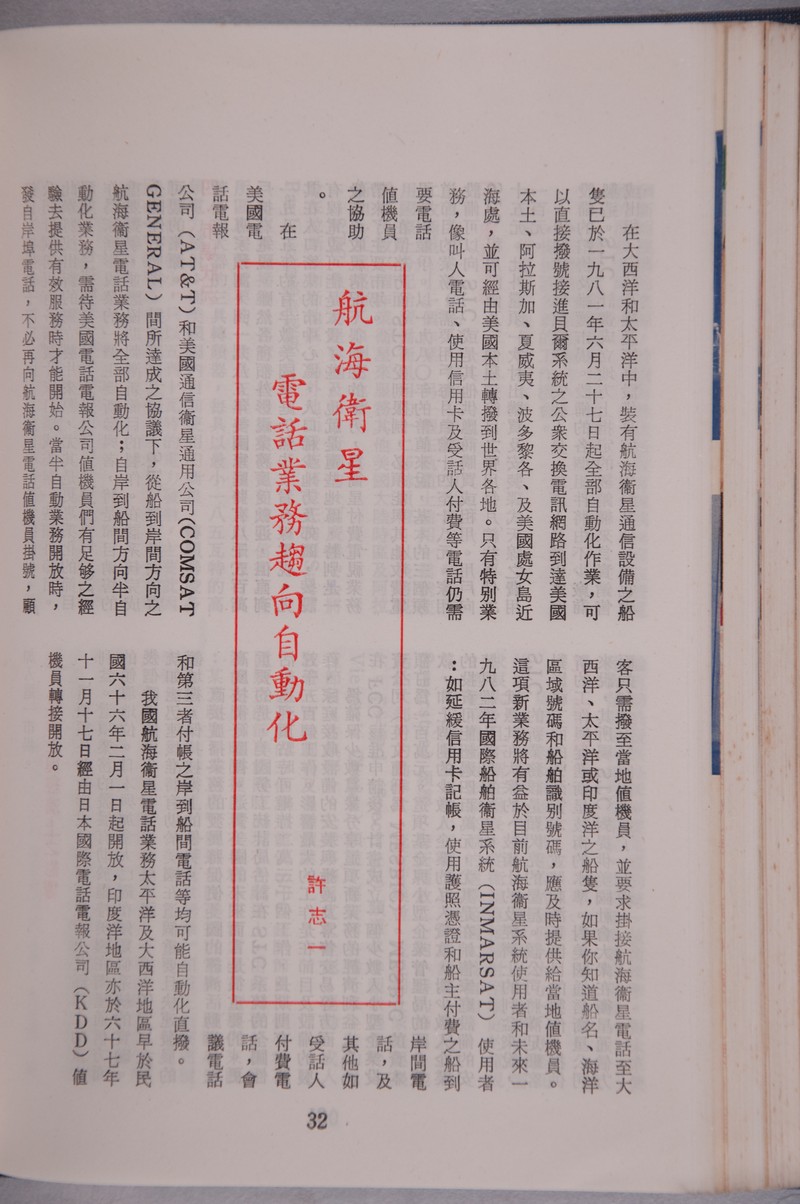 航海衛星
電話業務趨向自動化
許志一
在大西洋和太平洋中，裝有航海衛星通信設備之船
隻已於一九八一年六月二十七日起全部自動化作業，可
以直接撥號接進貝爾系統之公衆交換電訊網路到達美國
本土、阿拉斯加、夏威夷、波多黎各、及美國處女島近
海處，並可經由美國本土轉撥到世界各地。只有特別業
務，像叫人電話、使用信用卡及受話人付費等電話仍需
要電話
値機員
之協助
。
在
美國電
話電報
公司（AT&T）和美國通信衛星通用公司(COMSAT
GENERAL）間所達成之協議下，從船到岸間方向之
航海衛星電話業務將全部自動化；自岸到船間方向半自
動化業務，需待美國電話電報公司値機員們有足够之經
驗去提供有效服務時才能開始。當半自動業務開放時，
發自岸埠電話，不必再向航海衛星電話値機員掛號，顧
客只需撥至當地値機員，並要求掛接航海衛星電話至大
西洋、太平洋或印度洋之船隻，如果你知道船名、海洋
區域號碼和船舶識別號碼，應及時提供給當地値機員。
這項新業務將有益於目前航海衛星系統使用者和未來一
九八二年國際船舶衛星系統（INMARSAT）使用者
：如延緩信用卡記帳，使用護照憑證和船主付費之船到
岸間電
話，及
其他如
受話人
付費電
話，會
議電話
和第三者付帳之岸到船間電話等均可能自動化直撥。
我國航海衛星電話業務太平洋及大西洋地區早於民
國六十六年二月一日起開放，印度洋地區亦於六十七年
十一月十七日經由日本國際電話電報公司（KDD）値
機員轉接開放。
32